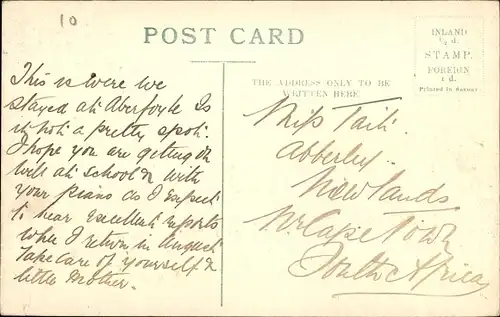 10
POST CARD
INLAND
½ d.
STAMP.
FOREIGN
1 d.
Printed in Saxony
THE ADDRESS ONLY TO BE
WRITTEN HERE
This is were we
stayed at Aberfoyle Is
it not a pretty spot.
I hope you are getting on
well at school & with
your piano as I expect
to hear excellent reports
when I return in August
Take care of yourself &
little Mother.
Miss Tait.
Abberley.
Newlands
Nr. Cape Town
South Africa